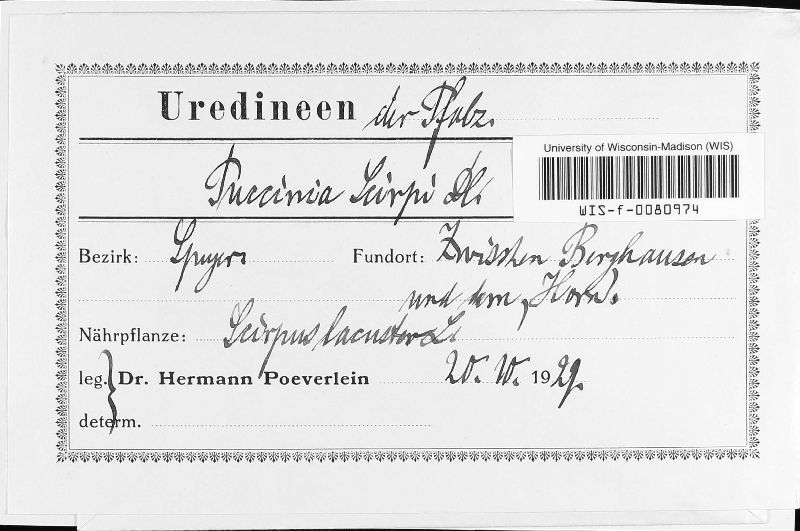 Uredineen der Pfalz.
University of Wisconsin-Madison (WIS)
WIS-f-0080974
Puccinia Scirpi DC.
Bezirk: Speyer. Fundort: Zwischen Berghausen
und dem "Horn".
Nährpflanze: Scirpus lacuster L.
leg. Dr. Hermann Poeverlein 20. 1929.
determ.